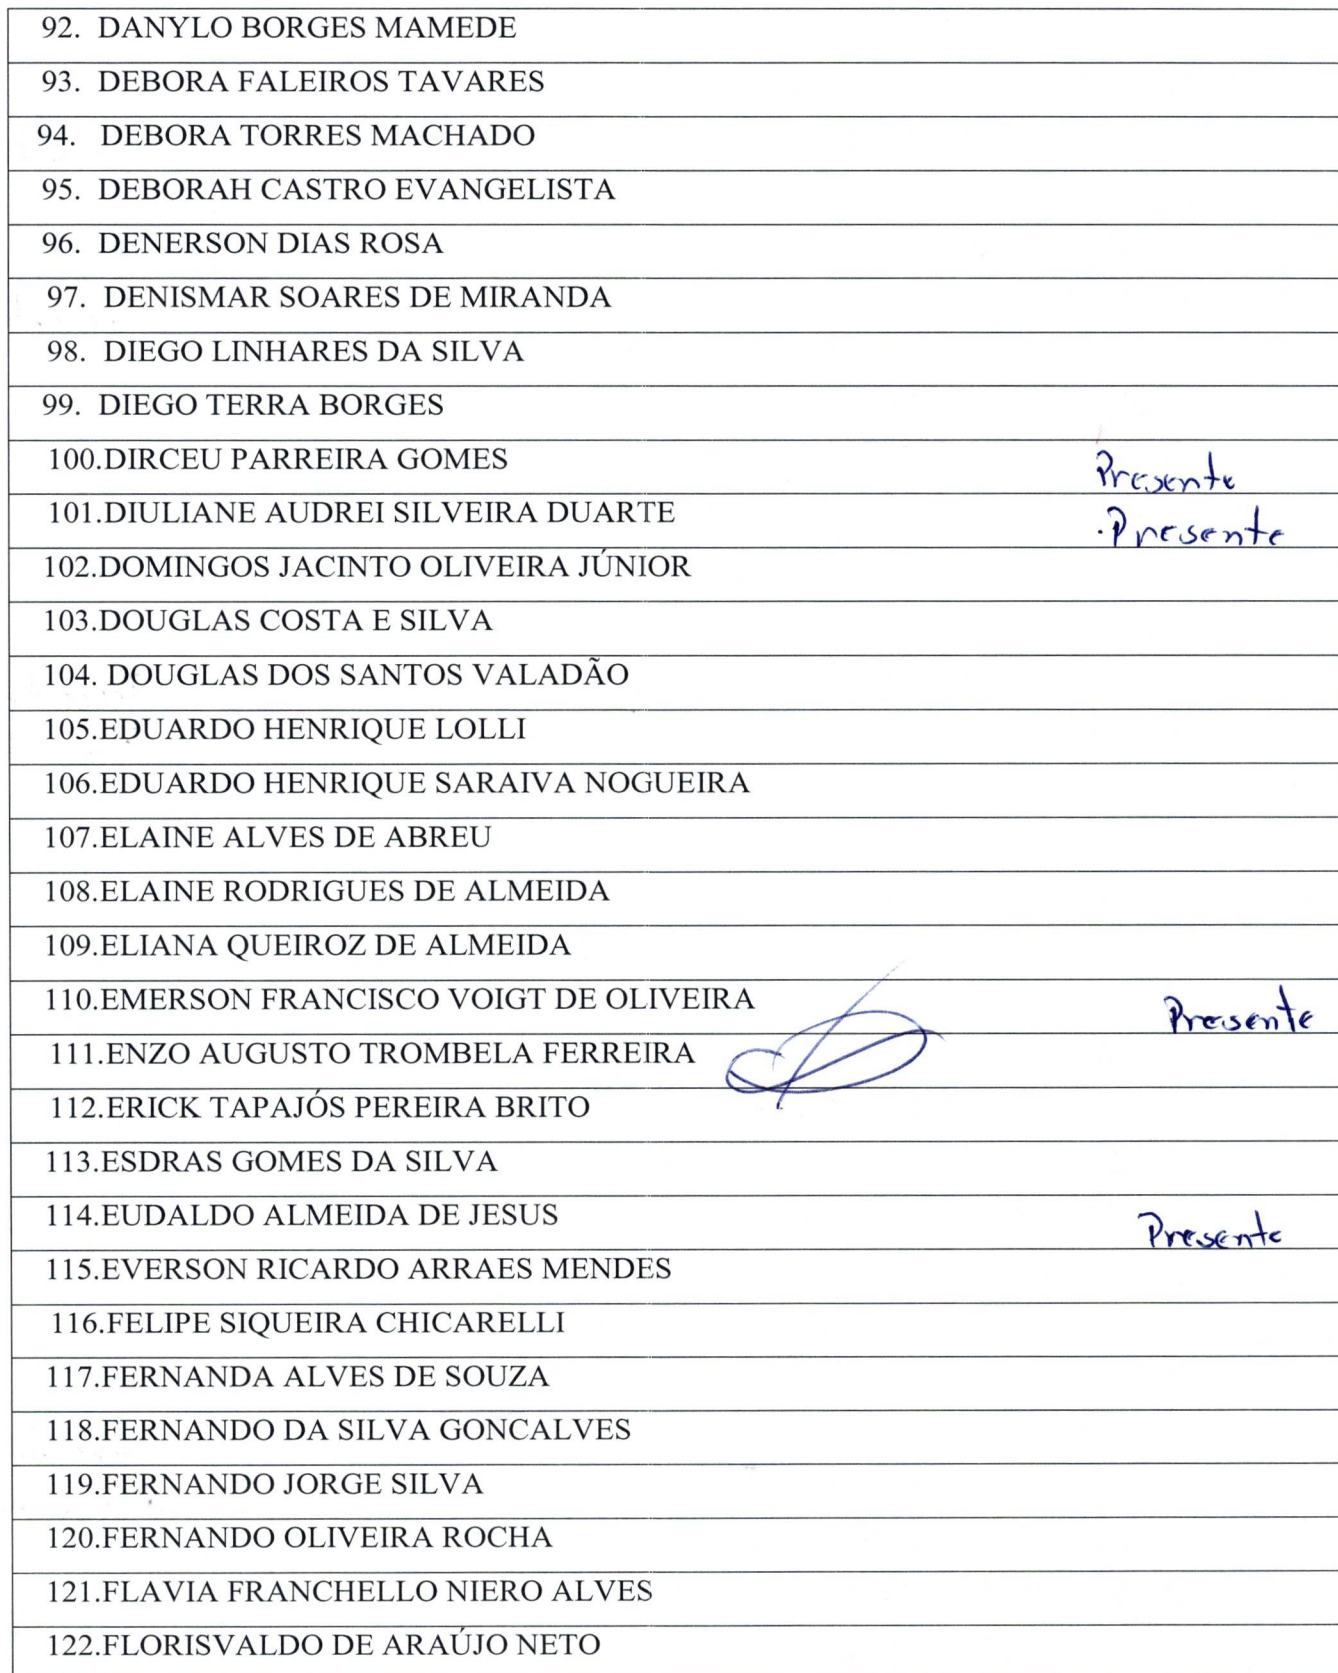 92. DANYLO BORGES MAMEDE
93. DEBORA FALEIROS TAVARES
94. DEBORA TORRES MACHADO
95. DEBORAH CASTRO EVANGELISTA
96. DENERSON DIAS ROSA
97. DENISMAR SOARES DE MIRANDA
98. DIEGO LINHARES DA SILVA
99. DIEGO TERRA BORGES
100.DIRCEU PARREIRA GOMES Presente
101.DIULIANE AUDREI SILVEIRA DUARTE Presente
102.DOMINGOS JACINTO OLIVEIRA JÚNIOR
103.DOUGLAS COSTA E SILVA
104. DOUGLAS DOS SANTOS VALADÃO
105.EDUARDO HENRIQUE LOLLI
106.EDUARDO HENRIQUE SARAIVA NOGUEIRA
107.ELAINE ALVES DE ABREU
108.ELAINE RODRIGUES DE ALMEIDA
109.ELIANA QUEIROZ DE ALMEIDA
110.EMERSON FRANCISCO VOIGT DE OLIVEIRA Presente
111.ENZO AUGUSTO TROMBELA FERREIRA
112.ERICK TAPAJÓS PEREIRA BRITO
113.ESDRAS GOMES DA SILVA
114.EUDALDO ALMEIDA DE JESUS Presente
115.EVERSON RICARDO ARRAES MENDES
116.FELIPE SIQUEIRA CHICARELLI
117.FERNANDA ALVES DE SOUZA
118.FERNANDO DA SILVA GONCALVES
119.FERNANDO JORGE SILVA
120.FERNANDO OLIVEIRA ROCHA
121.FLAVIA FRANCHELLO NIERO ALVES
122.FLORISVALDO DE ARAÚJO NETO